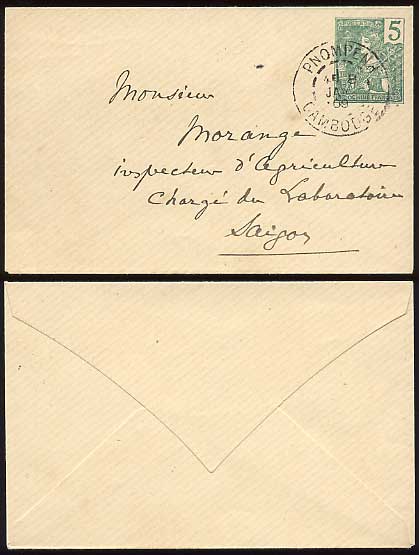 5
PNOMPENH
JA
09
CAMBODGE
Monsieur
Morange
inspecteur d'Agriculture
Chargé du Laboratoire
Saigon